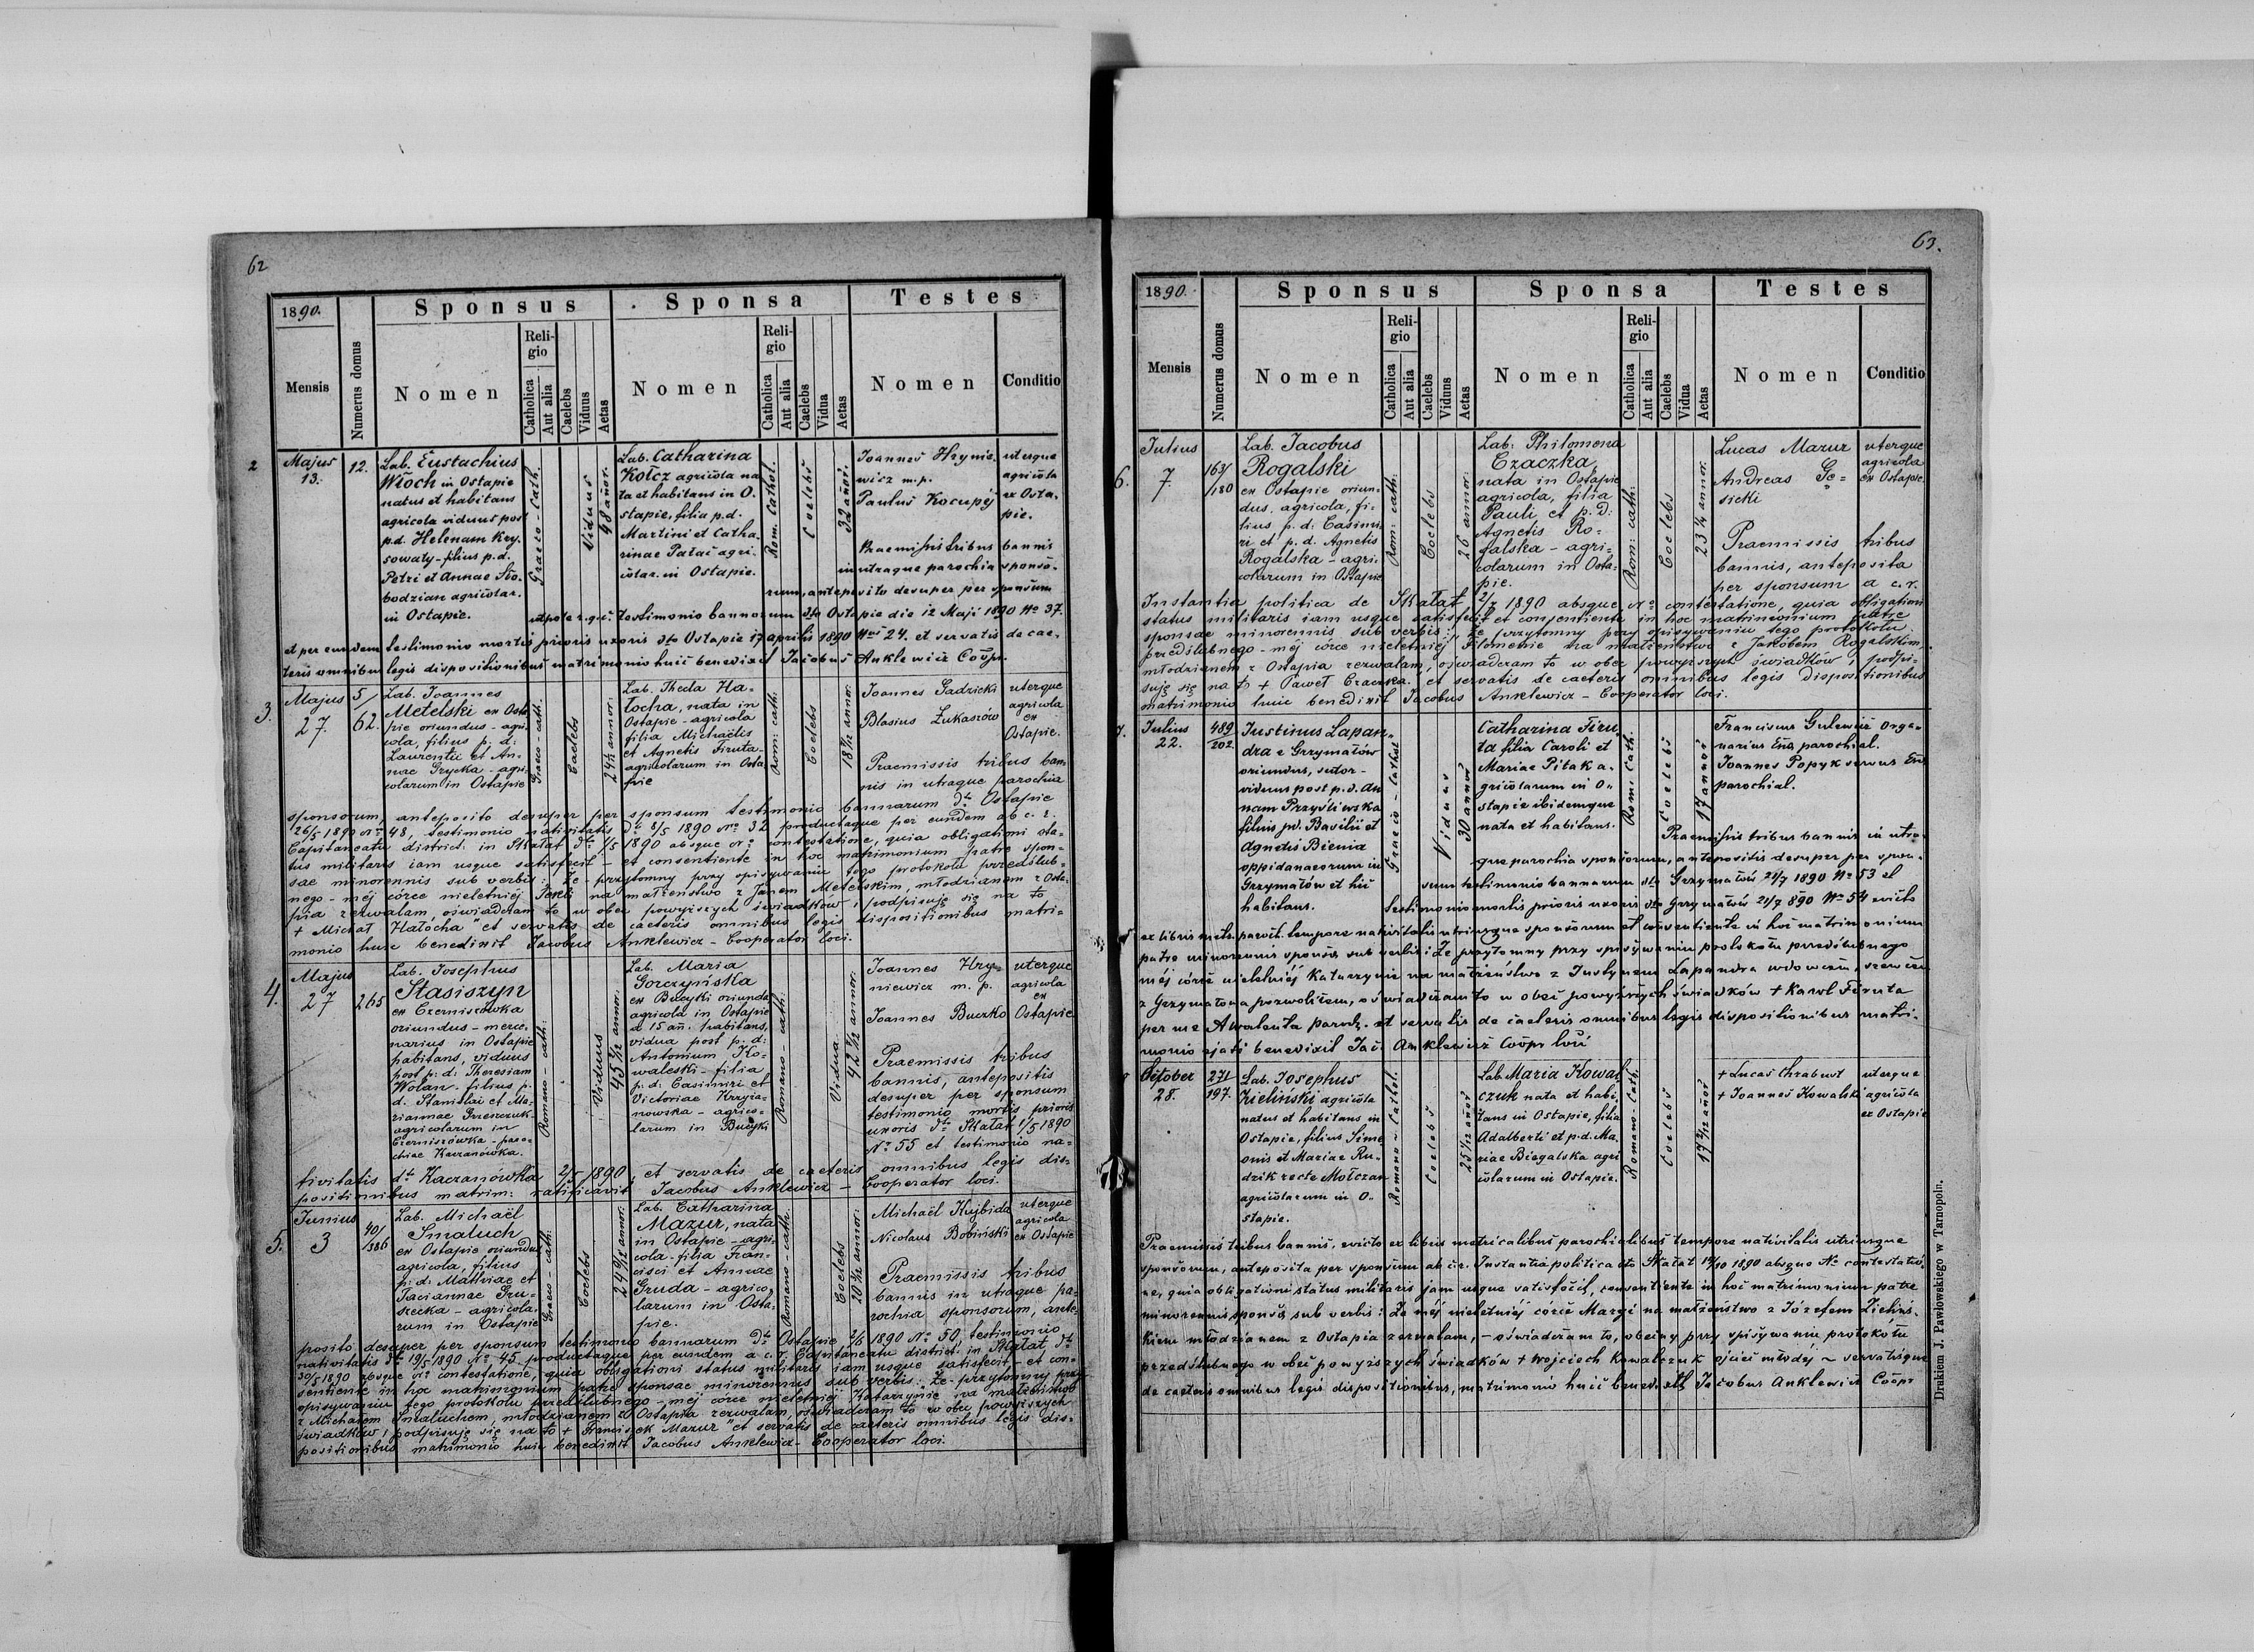 62
1890.
Sponsus
Sponsa
Testes
Mensis
Numerus domus
Nomen
Religio
Catholica
Aut alia
Caelebs
Viduus
Aetas
Nomen
Religio
Catholica
Aut alia
Caelebs
Vidua
Aetas
Nomen
Conditio
2
Majus
13.
12.
Lab. Eustachius
Włoch in Ostapie
natus et habitans
agricola viduus post
p.d. Helenam Kry-
sowaty - filius p.d.
Petri et Annae Sło-
bodzian agricolar.
in Ostapie.
Graeco-Cath.
Viduus
48 añor.
Lab. Catharina
Kołcz agricola na
ta et habitans in O-
stapie, filia p.d.
Martini et Catha-
rinae Pałac agri-
colar. in Ostapie.
Rom. Cathol.
Coelebs
32 añor.
Joannes Hrynie-
wicz m.p.
Paulus Kocupéj
uterque
agricola
ex Osta-
pie.
Praemissis tribus bannis
in utraque parochia sponso-
rum, anteposito desuper per sponsum
utpote r.g.c. testimonio bannorum dto Ostapie die 12 Maji 1890 No 37.
et per eundem testimonio mortis prioris uxoris dto Ostapie 17 aprilis 1890 Nos 24. et servatis de cae-
teris omnibus legis dispositionibus matrimonio huic benedixit Jacobus Anklewicz Coöpr.
3.
Majus
27.
5/
62.
Lab. Joannes
Metelski ex Osta
pie oriundus - agri-
cola, filius p. d:
Laurentii et An-
nae Grycka - agri-
colarum in Ostapie
Graeco-cath.
Caelebs
24½ annor.
Lab. Thecla Ha-
łocha, nata in
Ostapie - agricola
filia Michaëlis
et Agnetis Firuta-
agricolarum in Osta
pie
Rom: cath:
Coelebs
18½ annor.
Joannes Gadzicki
Blasius Łukaszów
uterque
agricola
ex
Ostapie.
Praemissis tribus ban
nis in utraque parochia
sponsorum, anteposito desuper per sponsum testimonio bannorum dto Ostapie
26/5 1890 No 48, testimonio nativitatis dto 8/5 1890 No 32 productaque per eundem ab c. r.
Capitaneatu district. in Skałat dto 1/5 1890 absque No contestatione, quia obligationi sta-
tus militaris iam usque satisfecit - et consentiente in hoc matrimonium patre spon-
sae minorennis sub verbis: Że - przytomny przy opisywaniu tego protokołu przedślub-
nego - méj córce nieletniéj Tekli na małżeństwo z Janem Metelskim, młodzianem z Osta-
pia zezwalam, oświadczam to w obec powyższych świadków i podpisuję się na to
+ Michał Hałocha" et servatis de caeteris omnibus legis dispositionibus matri-
monio huic benedixit Jacobus Anklewicz - Cooperator loci.
4.
Majus
27
265
Lab. Josephus
Stasiszyn
ex Czerniszówka
oriundus - merce-
narius in Ostapie
habitans, viduus
post p: d: Theresiam
Wolan - filius p.
d. Stanislai et Ma-
riannae Grzeszczuk-
agricolarum in
Czerniszówka - paro-
chiae Kaczanówka.
Romano-cath:
Viduus
45½ annor.
Lab. Maria
Gorczyńska
ex Bucyki oriunda
agricola in Ostapie
a 15 añ. habitans,
vidua post p: d:
Antonium Ko-
waleski - filia
p: d: Casimiri et
Victoriae Krzyża-
nowska - agrico-
larum in Bucyki
Romano-cath.
Vidua
42½ annor.
Joannes Hry-
niewicz m. p.
Joannes Buczko
uterque
agricola
ex
Ostapie
Praemissis tribus
bannis, antepositis
desuper per sponsum
testimonio mortis prioris
uxoris dto Skałat 1/5 1890
No 55 et testimonio na-
tivitatis dto Kaczanówka 2/5 1890, et servatis de caeteris omnibus legis dis-
positionibus matrim: ratificavit Jacobus Anklewicz - Cooperator loci.
5.
Junius
3
40/
386
Lab. Michaël
Smaluch
ex Ostapie oriundus
agricola, filius
p: d: Mathiae et
Taciannae Gru-
szecka - agricola-
rum in Ostapie
Graeco-cath:
Coelebs
24 annor.
Lab. Catharina
Mazur, nata
in Ostapie - agri-
cola - filia Fran-
cisci et Annae
Gruda - agrico-
larum in Osta-
pie.
Romano-cath.
Coelebs
20 annor:
Michaël Kujbida
Nicolaus Bobiński
uterque
agricola
ex Ostapie
Praemissis tribus
bannis in utraque pa-
rochia sponsorum, ante-
posito desuper per sponsum testimonio bannorum dto Ostapie 2/6 1890 No 50, testimonio
nativitatis dto 19/5 1890 No 45 productaque per eundem a c. r. Capitaneatu district. in Skałat dto
30/5 1890 absque No contestatione, quia obligationi status militaris iam usque satisfecit - et con-
sentiente in hoc matrimonium patre sponsae minorennis sub verbis: Że - przytomny przy
opisywaniu tego protokołu przedślubnego - méj córce nieletniéj Katarzynie na małżeństwo
z Michałem Smaluchem, młodzianem z Ostapia zezwalam, oświadczam to w obec powyższych
świadków, i podpisuję się na to + Franciszek Mazur" et servatis de caeteris omnibus legis dis-
positionibus matrimonio huic benedixit Jacobus Anklewicz - Cooperator loci.
63.
1890.
Sponsus
Sponsa
Testes
Mensis
Numerus domus
Nomen
Religio
Catholica
Aut alia
Caelebs
Viduus
Aetas
Nomen
Religio
Catholica
Aut alia
Caelebs
Vidua
Aetas
Nomen
Conditio
6.
Julius
7
163/
/180
Lab. Jacobus
Rogalski
ex Ostapie oriun-
dus, agricola, fi-
lius p: d: Casimi-
ri et p. d. Agnetis
Rogalska - agri-
colarum in Ostapie
Rom: cath:
Coelebs
26 annor:
Lab: Philomena
Czaczka,
nata in Ostapie
agricola, filia
Pauli et p. d:
Agnetis Ro-
galska - agri-
colarum in Osta-
pie.
Rom: cath:
Coelebs
23¼ annor.
Lucas Mazur
Andreas Gę-
sicki
uterque
agricola
ex Ostapie.
Praemissis tribus
bannis, anteposita
per sponsum a c. r.
Instantia politica de Skałat 2/7 1890 absque No contestatione, quia obligationi
status militaris iam usque satisfecit et consentiente in hoc matrimonium patre
sponsae minorennis sub verbis: Że przytomny przy opisywaniu tego protokołu
przedślubnego - méj córce nieletniéj Filomenie na małżeństwo z Jakóbem Rogalskim,
młodzianem z Ostapia zezwalam, oświadczam to w obec powyższych świadków i podpi-
suję się na to + Paweł Czaczka." et servatis de caeteris omnibus legis dispositionibus
matrimonio huic benedixit Jacobus Anklewicz - Cooperator loci.
7.
Julius
22.
489
202.
Justinus Łapan-
dra e Grzymałów
oriundus, sutor -
viduus post p.d. An
nam Przyśliwska
filius p.d. Basilii et
Agnetis Bienia
oppidanaeorum in
Grzymałów et hic
habitans.
Graeco-Cathol
Viduus
30 annor
Catharina Firu-
ta filia Caroli et
Mariae Pitak a-
gricolarum in O-
stapie ibidemque
nata et habitans.
Rom: Cath.
Coelebs
17 annor
Franciscus Gulewicz Orga-
narius Ecc. parochial.
Joannes Popyk servus Ecc
parochial.
Praemissis tribus bannis in utra-
que parochia sponsorum, antepositis desuper per spon-
sum testimonio bannorum dto Grzymałów 21/7 1890 No 53 et
testimonio mortis prioris uxoris dto Grzymałów 21/7 890 No 54 evicto
ex libris metr. paroch. tempore nativitatis utriusque sponsorum et consentiente in hoc matrimonium
patre minorennis sponsae sub verbis: Że przytomny przy spisywaniu protokołu przedślubnego
méj córce nieletniéj Katarzynie na małżeństwo z Justynem Łapandra wdowcem, szewcem
z Grzymałowa pozwoliłem, oświadczam to w obec powyższych świadków + Karol Firuta
per me A Walenta paroch. et servatis de caeteris omnibus legis dispositionibus matri-
monio ejati benedixit Jac. Anklewicz Coöpr loci
October
28.
271
197.
Lab. Josephus
Zieliński agricola
natus et habitans in
Ostapie, filius Sime
onis et Mariae Ru-
dzik recte Mołczan
agricolarum in O-
stapie.
Romano-Cathol.
Coelebs
25 1/12 añor
Lab. Maria Kowal
czuk nata et habi-
tans in Ostapie, filia
Adalberti et p.d. Ma-
riae Biegalska agri
colarum in Ostapie.
Romano-Cath.
Coelebs
17 añor
+ Lucas Chrabust
+ Joannes Kowalski
uterque
agricola
ex Ostapie
Praemissis tribus bannis, evicto ex libris metricalibus parochialibus tempore nativitatis utriusque
sponsorum, anteposita per sponsum ab c.r. Instantia politica dto Skałat 14/10 1890 absque No contestatio-
ne, quia obligationi status militaris jam usque satisfecit, consentiente in hoc matrimonium patre
minorennis sponsae sub verbis: Że méj nieletniéj córce Maryi na małżeństwo z Józefem Zieliń-
skim młodzianem z Ostapia zezwalam, - oświadczam to, obecny przy spisywaniu protokołu
przedślubnego w obec powyższych świadków + Wojciech Kowalczuk ojciec młodéj ~ servatisque
de caeteris omnibus legis dispositionibus, matrimonio huic benedixit Jacobus Anklewicz Coöpr
Drukiem J. Pawłowskiego w Tarnopolu.